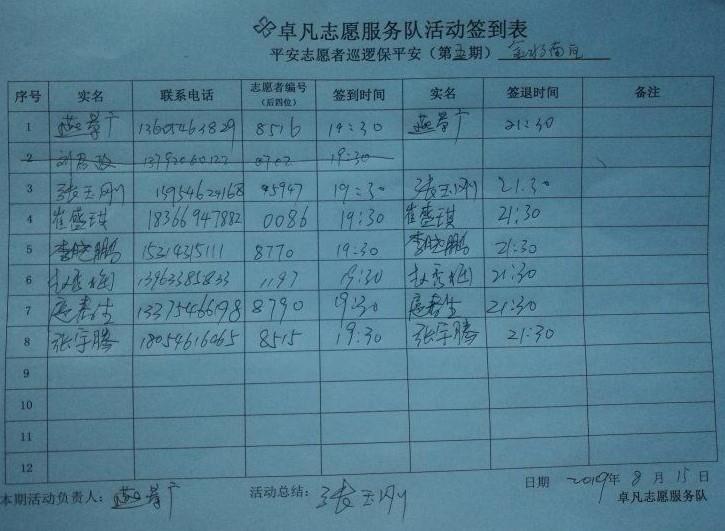 卓凡志愿服务队活动签到表
平安志愿者巡逻保平安（第五期）金水南區
序号 实名 联系电话 志愿者编号（后四位） 签到时间 实名 签退时间 备注
1 13605463829 8516 19:30 21:30
2 19:30
3 张玉刚 15954624168 5947 19:30 张玉刚 21:30
4 崔盛琪 18366947882 0086 19:30 崔盛琪 21:30
5 李晓鹏 15214315111 8770 19:30 李晓鹏 21:30
6 1197 19:30 21:30
7 13375466198 8790 19:30 21:30
8 张宇腾 18054616065 8515 19:30 张宇腾 21:30
9
10
11
12
本期活动负责人： 活动总结：张玉刚 日期 2019年8月15日
卓凡志愿服务队